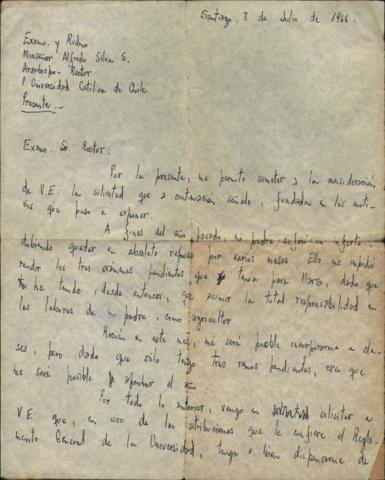 Santiago, 3 de Julio de 1966.
Exsmo. y Rvdmo
Monseñor Alfredo Silva S.
Arzobispo - Rector
P. Universidad Católica de Chile
Presente.-
Exsmo. Sr. Rector:
Por la presente, me permito someter a la consideración
de V.E. la solicitud que a continuación señalo, fundada en los moti-
vos que paso a exponer.
A fines del año pasado, mi padre sufrió un infarto,
debiendo quedar en absoluto reposo por varios meses. Ello me impidió
rendir los tres exámenes pendientes que tenía para Marzo, dado que
he tenido, desde entonces, que asumir la total responsabilidad en
las labores de mi padre, como agricultor
Recién en este mes, me será posible incorporarme a cla-
ses, pero dado que solo tengo tres ramos pendientes, creo que
me será posible aprobar el año
Por todo lo anterior, vengo en solicitar a
V.E. que, en uso de las atribuciones que le confiere el Regla-
mento General de la Universidad, tenga a bien dispensarme de